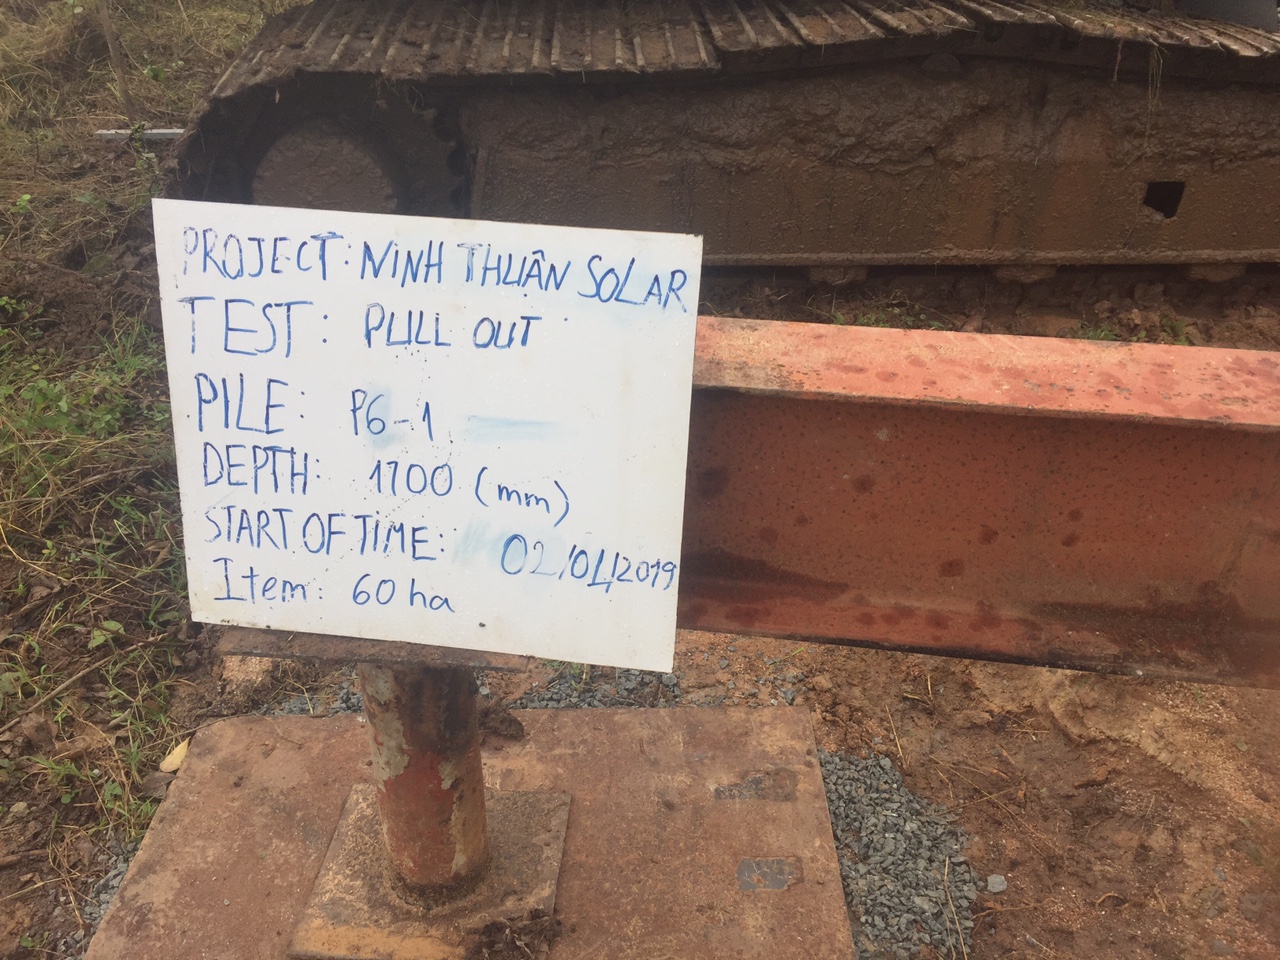 PROJECT: NINH THUÂN SOLAR
TEST: PULL OUT
PILE: P6-1
DEPTH: 1700 (mm)
START OF TIME: 02/01/2019
Item: 60 ha